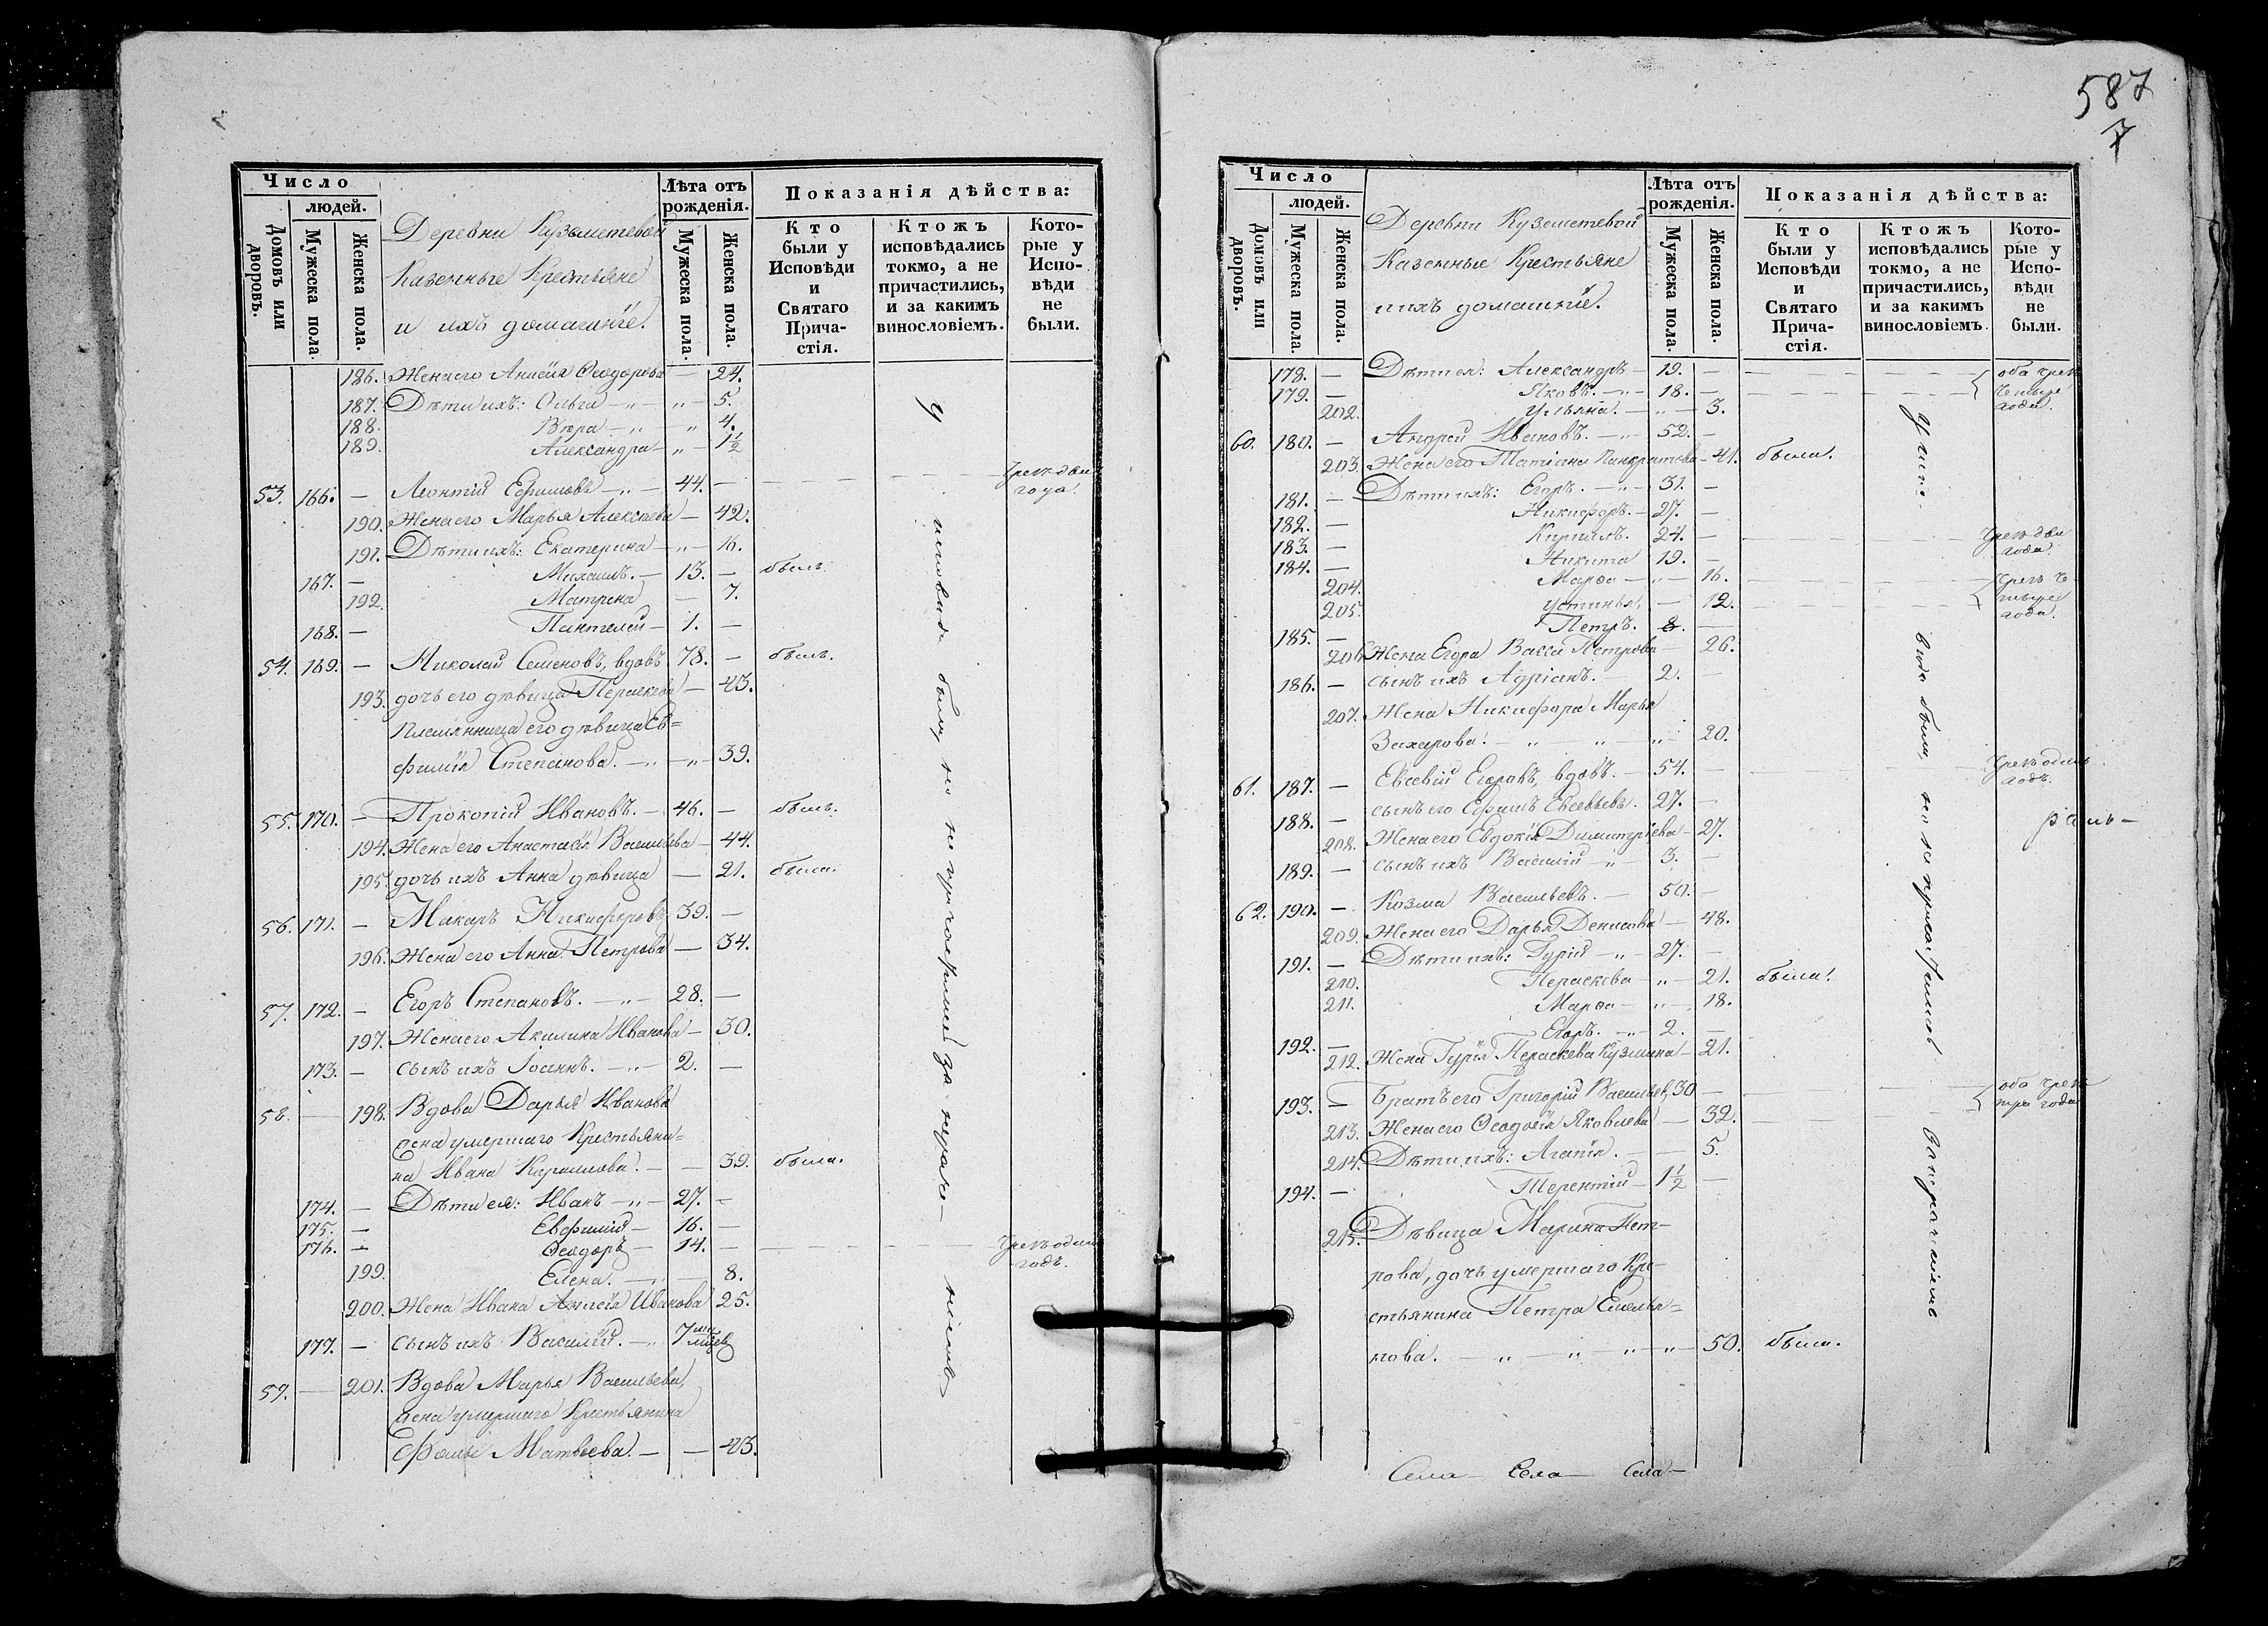 587
7
Число
людей.
Домовъ или дворовъ.
Мужеска пола.
Женска пола.
Деревни Кузьметевой
Казенные Крестьяне
и ихъ домашніе.
Лѣта отъ рожденія.
Мужеска пола.
Женска пола.
Показанія дѣйства:
Кто были у Исповѣди и Святаго Прича-стія.
Ктожъ исповѣдались токмо, а не причастились, и за какимъ винословіемъ.
Кото-рые у Испо-вѣди не были.
186. Жена его Анисія Ѳеодорова — 24.
187. Дѣти ихъ: Ольга — „ — „ — 5.
188. Вѣра — „ — „ 4.
189. Александра — „ — 1½
53. 166. — Леонтій Ефимовъ — „ — 44. — чрезъ два года.
190. Жена его Марья Алексѣева — 42.
191. Дѣти ихъ: Екатерина — „ — 16.
167. — Михаилъ. — 13. — былъ.
192. Матрена — 7.
168. — Пантелей — 1. —
54. 169. — Николай Семеновъ, вдовъ 78. — былъ.
193. дочь его дѣвица Пераскева — 43.
Племянница его дѣвица Ев=
фимія Степанова. — „ — „ — 39.
55. 170. — Прокопій Ивановъ. — 46. — былъ.
194. Жена его Анастасія Васильева — 44.
195. дочь ихъ Анна дѣвица — 21. была.
56. 171. — Макаръ Никифоровъ 39. —
196. Жена его Анна Петрова — 34.
57. 172. — Егоръ Степановъ. — „ — 28. —
197. Жена его Акилина Иванова — 30.
173. — сынъ ихъ Іоаннъ. — „ — 2. —
58. — 198. Вдова Дарья Иванова
жена умершаго Крестьяни=
на Ивана Кириллова. — — 39. была.
174. — Дѣти ея: Иванъ — „ — 27. —
175. — Евфимій — 16. —
176. — Ѳеодоръ — 14. — чрезъ одинъ годъ.
199. Елена. — „ — 8.
200. Жена Ивана Анисія Иванова 25.
177. — сынъ ихъ Василій. — „ 7
59. — 201. Вдова Марья Васильева,
жена умершаго Крестьянина
Фомы Матвѣева. — — 43.
У исповѣди были, но не причастились за нераченіемъ
Число
людей.
Домовъ или дворовъ.
Мужеска пола.
Женска пола.
Деревни Кузметевой
Казенные Крестьяне
и ихъ домашніе.
Лѣта отъ рожденія.
Мужеска пола.
Женска пола.
Показанія дѣйства:
Кто были у Исповѣди и Святаго Прича-стія.
Ктожъ исповѣдались токмо, а не причастились, и за какимъ винословіемъ.
Кото-рые у Испо-вѣди не были.
178. — Дѣти ея: Александръ — 19. — оба чрезъ
179. — Яковъ. — „ — 18. — четыре года.
202. Ульяна. — „ — 3.
60. 180. — Андрей Ивановъ. — „ — 52. —
203. Жена его Татіана Панкратова — 41. была.
181. — Дѣти ихъ: Егоръ. — „ — 31. —
182. — Никифоръ. — 27. —
183. — Кириллъ. 24. — чрезъ два года.
184. — Никита 19. —
204. Марѳа — „ — 16. чрезъ че-
205. Устинья, — 12. тыре года.
185. — Петръ. 8. —
206. Жена Егора Васса Петрова — 26.
186. — сынъ ихъ Адріанъ. — 2. —
207. Жена Никифора Марья
Захарова. — „ — „ — „ — 20.
61. 187. — Евсевій Егоровъ, вдовъ. — 54. — чрезъ одинъ годъ.
188. — сынъ его Ефимъ Евсевьевъ. 27. —
208. Жена его Евдокія Димитріева — 27.
189. — сынъ ихъ Василій — „ — 3. —
62. 190. — Козма Васильевъ. — 50. —
209. Жена его Дарья Денисова — 48.
191. — Дѣти ихъ: Гурій — „ — 27. —
210. Пераскева — „ — 21. была.
211. Марѳа — „ — 18.
192. — Егоръ. — „ — 2. —
212. Жена Гурія Пераскева Кузмина — 21.
193. — Братъ его Григорій Васильевъ 30 — оба чрезъ
213. Жена его Ѳеодосія Яковлева — 32. три года
214. Дѣти ихъ: Агапія. — — 5.
194. — Терентій — 1½ —
215. Дѣвица Марина Пет-
рова, дочь умершаго Кре-
стьянина Петра Емелья=
нова. — „ — „ — „ — „ — 50. была.
но не причастились
Села — Села — Села —